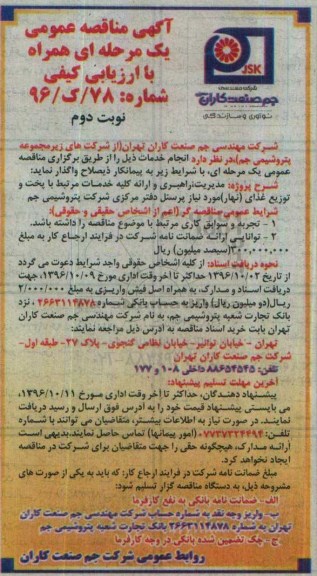 آگهی مناقصه عمومی
یک مرحله ای همراه
با ارزیابی کیفی
شماره: ۷۸/ک/۹۶
نوبت دوم
JSK
شرکت مهندسی
جم صنعت کاران
نوآوری و سازندگی
شرکت مهندسی جم صنعت کاران تهران(از شرکت های زیرمجموعه
پتروشیمی جم)در نظر دارد انجام خدمات ذیل را از طریق برگزاری مناقصه
عمومی یک مرحله ای، با شرایط زیر به پیمانکار ذیصلاح واگذار نماید:
شرح پروژه: مدیریت،راهبری و ارائه کلیه خدمات مرتبط با پخت و
توزیع غذای (نهار)مورد نیاز پرسنل دفتر مرکزی شرکت پتروشیمی جم
شرایط عمومی مناقصه گر (اعم از اشخاص حقیقی و حقوقی):
۱ - تجربه و سوابق کاری مرتبط با موضوع مناقصه را داشته باشد.
۲ - توانایی ارائه ضمانت نامه شرکت در فرایند ارجاع کار به مبلغ
۳۰۰,۰۰۰,۰۰۰(سیصد میلیون) ریال
نحوه دریافت اسناد: از کلیه اشخاص حقوقی واجد شرایط دعوت می گردد
از تاریخ ۱۳۹۶/۱۰/۰۲ حداکثر تا آخر وقت اداری مورخ ۱۳۹۶/۱۰/۰۹، جهت
دریافت اسناد و مدارک، به همراه اصل فیش واریزی به مبلغ ۲/۰۰۰/۰۰۰
ریال(دو میلیون ریال) واریز به حساب بانکی شماره ۲۶۶۳۱۱۴۸۷۸ ، نزد
بانک تجارت شعبه پتروشیمی جم، به نام شرکت مهندسی جم صنعت کاران
تهران بابت خرید اسناد مناقصه به آدرس ذیل مراجعه نمایند:
تهران - خیابان نوانیر- خیابان نظامی گنجوی- پلاک ۲۷- طبقه اول-
شرکت جم صنعت کاران تهران
تلفن: ۸۸۶۵۴۵۴۵ داخلی ۱۰۸ و ۱۷۷
آخرین مهلت تسلیم پیشنهاد:
پیشنهاد دهندگان، حداکثر تا آخر وقت اداری مورخ ۱۳۹۶/۱۰/۱۱،
می بایستی پیشنهاد قیمت خود را به آدرس فوق ارسال و رسید دریافت
نمایند. در صورت نیاز به اطلاعات بیشتر، متقاضیان می توانند با شماره
تلفن: ۰۷۷۳۷۳۲۴۴۹۴(امور پیمانها) تماس حاصل نمایند.بدیهی است
ارائه مدارک، هیچگونه حقی را جهت متقاضیان برای شرکت در مناقصه
ایجاد نخواهد کرد.
مبلغ ضمانت نامه شرکت در فرایند ارجاع کار که باید به یکی از صورت های
مشروحه ذیل، به دستگاه مناقصه گزار تسلیم شود:
الف- ضمانت نامه بانکی به نفع کارفرما
ب- واریز وجه نقد به شماره حساب شرکت مهندسی جم صنعت کاران
تهران به شماره ۲۶۶۳۱۱۴۸۷۸ بانک تجارت شعبه پتروشیمی جم
ج- چک تضمین شده بانکی در وجه کارفرما
روابط عمومی شرکت جم صنعت کاران